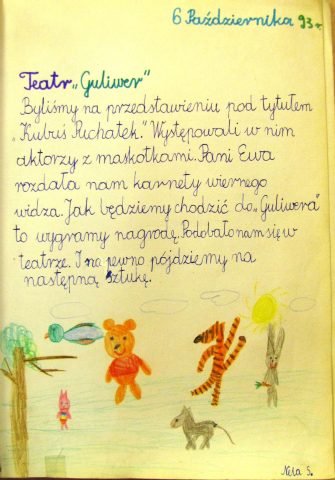 6 Października 93r.
Teatr „Guliwer"
Byliśmy na przedstawieniu pod tytułem
„Kubuś Puchatek." Występowali w nim
aktorzy z maskotkami. Pani Ewa
rozdała nam karnety wiernego
widza. Jak będziemy chodzić do „Guliwera"
to wygramy nagrodę. Podobało nam się w
teatrze. I na pewno pójdziemy na
następną sztukę.
Nela S.